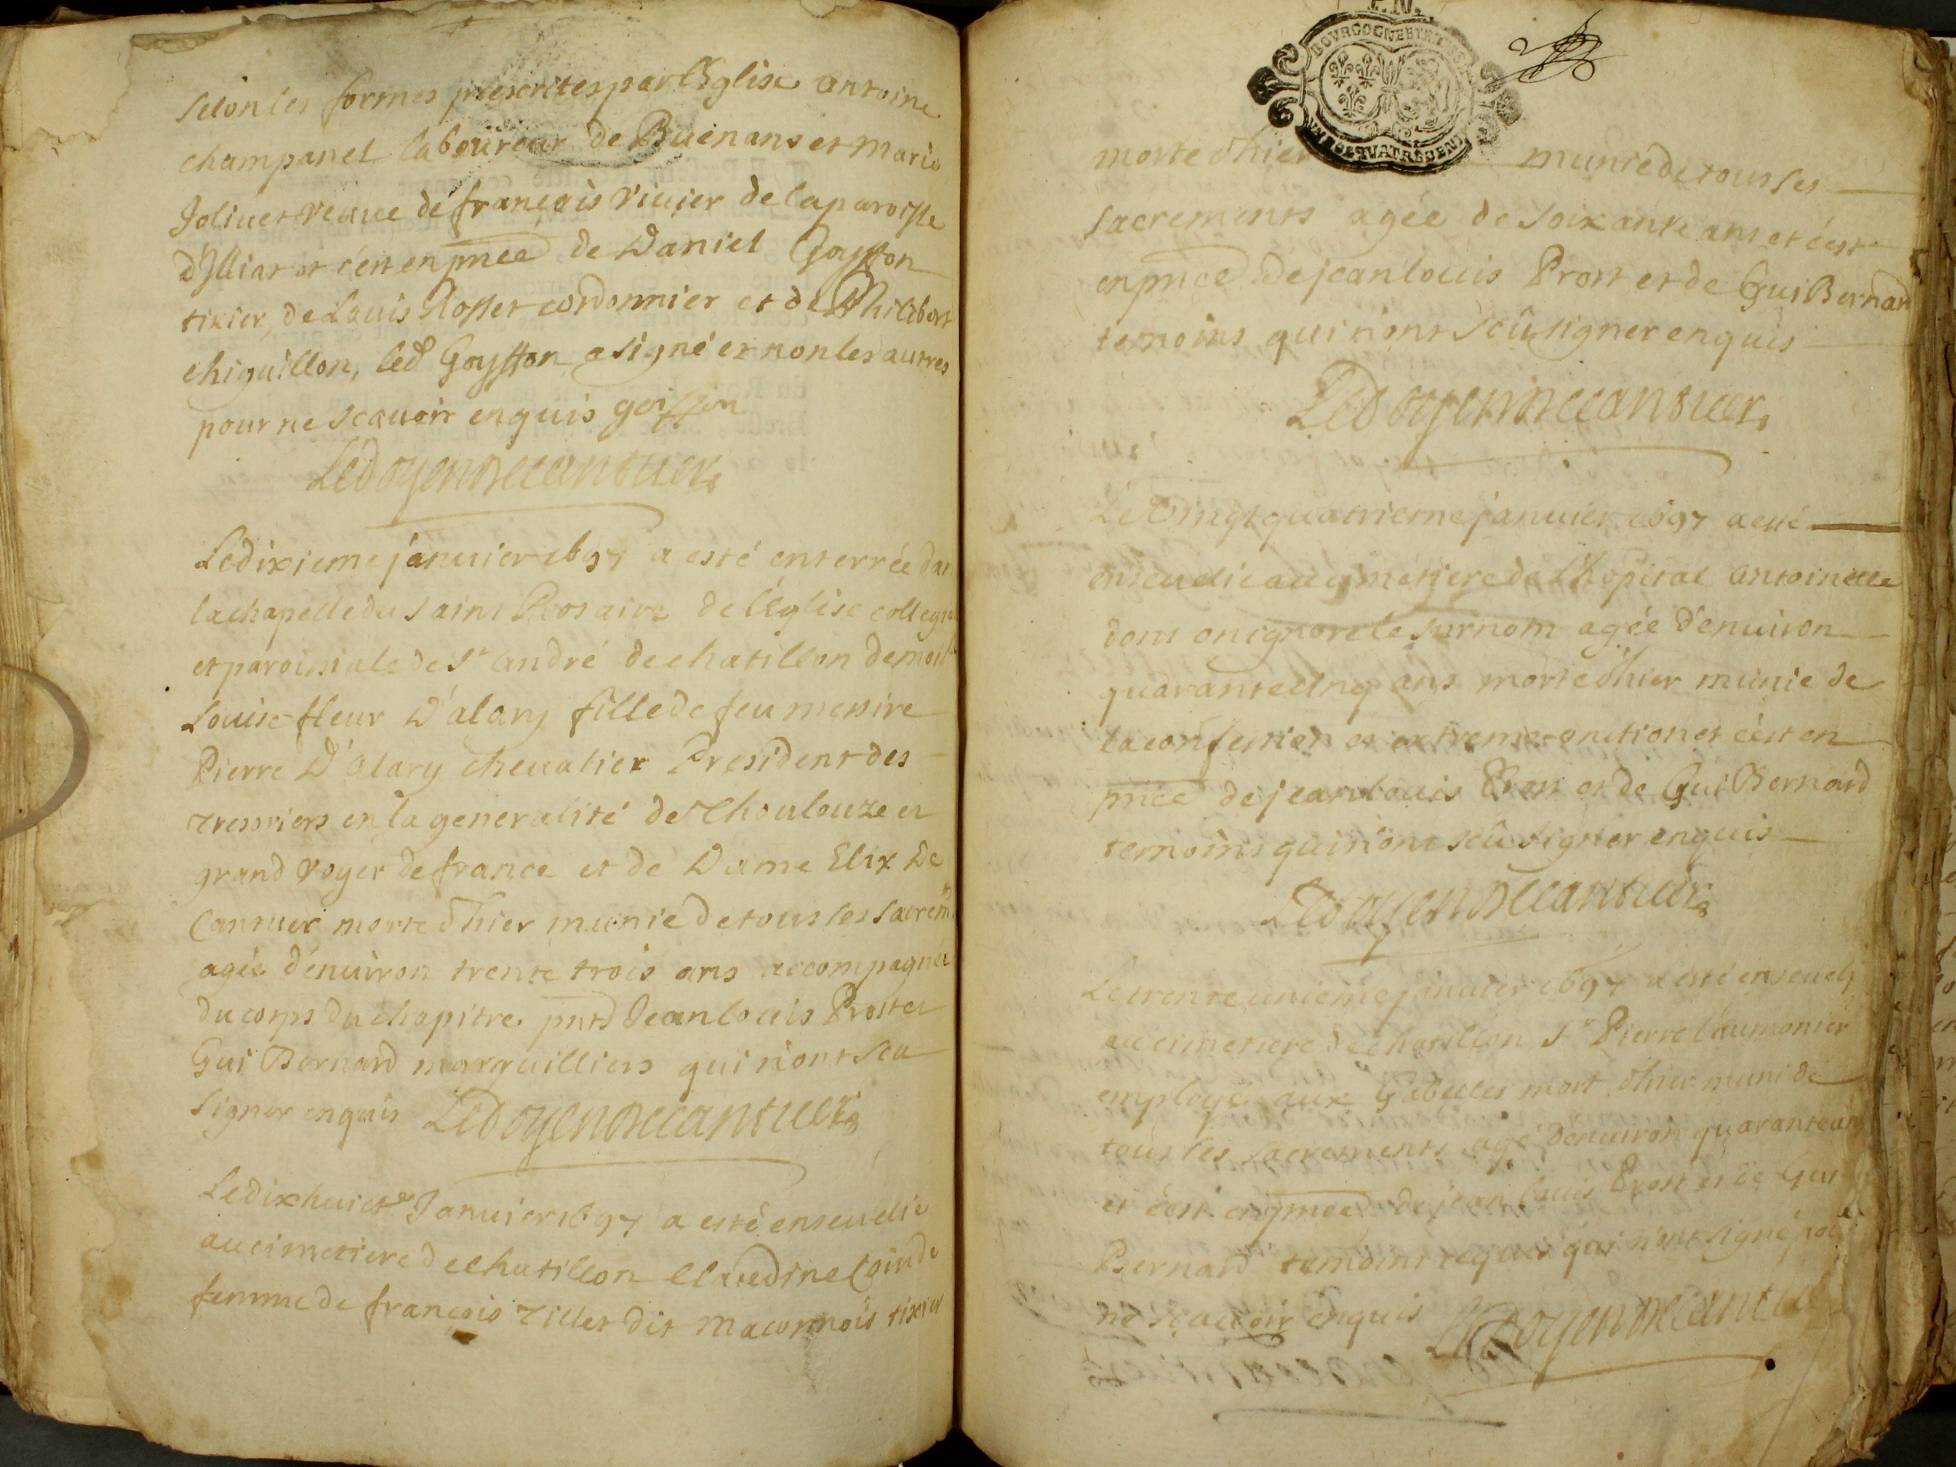 selon les formes prescrites par l'Eglise antoine
champanel laboureur de Buenans et marie
Joliuet veuue de françois viuier de la paroisse
d'Illiat et c'est en pnce de Daniel Goyffon
tixier, de Louis Rosset cordonnier et de Philibert
chiquillon, led Goyffon a signé et non les autres
pour ne scauoir enquis goiffon
Le doyen De cantuer
Le dixieme januier 1697 a esté enterrée dan
la chapelle du saint Rosaire de l'Eglise collegia
et paroissiale de St andré de chatillon demoise
Louise fleur D'alary fille de feu messire
Pierre D'alary cheualier President des
tresoriers en la generalité de Thoulouze et
grand voyer de france et de Dame Elix De
Cantuer morte d'hier munie de tous les sacremts
agée d'enuiron trente trois ans accompagnée
du corps du chapitre pnts Jean Louis Prost et
Gui Bernard marguilliers qui n'ont sceu
signer enquis Le doyen De cantuer
Le dixhuicte Januier 1697 a esté enseuelie
au cimetiere de chatillon Claudine Coinde
femme de françois Tillet dit maconnois tixier
BOVRGOGNE BRESSE
morte d'hier munie de tous ses
sacrements agée de soixante ans et c'est
en pnce de jean louis Prost et de Gui Bernard
temoins qui n'ont sceu signer enquis
Le doyen De cantuer
Le Vingt quatrieme januier 1697 a esté
enseuelie au cymetiere de l'hopital antoinette
dont on ignore le surnom agée d'enuiron
quarante cinq ans morte d'hier munie de
la confession et extreme onction et c'est en
pnce de jean louis Prost et de Gui Bernard
temoins qui n'ont sceu signer enquis
Le doyen De cantuer
Le trente unieme januier 1697 a esté enseueli
au cimetiere de chatillon Sr Pierre l'aumonier
employé aux Gabelles mort d'hier muni de
tous les sacrements agé d'enuiron quarante ans
et c'est en pnce de jean louis Prost et de Gui
Bernard temoins requis qui n'ont signé pour
ne scauoir enquis Le doyen De cantuer